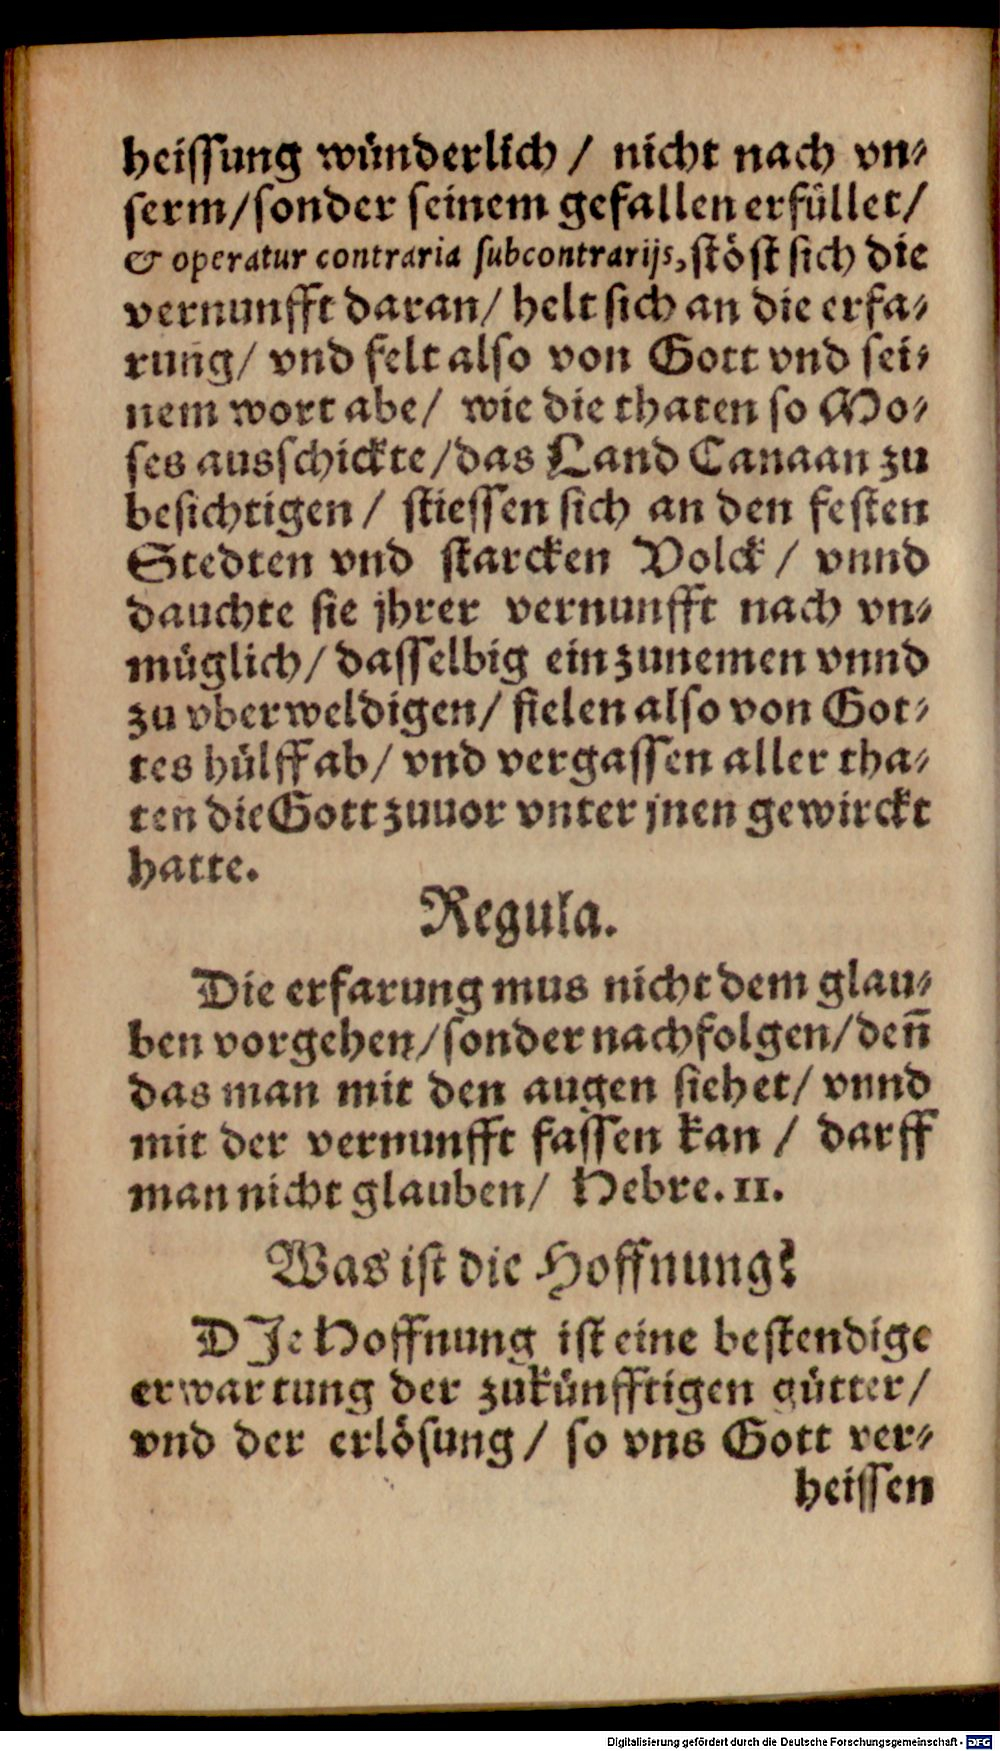 heissung wünderlich / nicht nach vn⸗
serm/sonder seinem gefallen erfüllet/
& operatur contraria subcontrarijs, stöst sich die
vernunfft daran/ helt sich an die erfa⸗
rung/ vnd felt also von Gott vnd sei⸗
nem wort abe/ wie die thaten so Mo⸗
ses ausschickte/das Land Canaan zu
besichtigen / stiessen sich an den festen
Stedten vnd starcken Volck / vnnd
dauchte sie jhrer vernunfft nach vn⸗
müglich/ dasselbig einzunemen vnnd
zu vberweldigen/ fielen also von Got⸗
tes hülff ab/ vnd vergassen aller tha⸗
ten die Gott zuuor vnter jnen gewirckt
hatte.
Regula.
Die erfarung mus nicht dem glau⸗
ben vorgehen/sonder nachfolgen/den̄
das man mit den augen siehet/ vnnd
mit der vernunfft fassen kan / darff
man nicht glauben/ Hebre. 11.
Was ist die Hoffnung?
DJe Hoffnung ist eine bestendige
erwartung der zukünfftigen gütter/
vnd der erlösung/ so vns Gott ver⸗
heissen
Digitalisierung gefördert durch die Deutsche Forschungsgemeinschaft - DFG